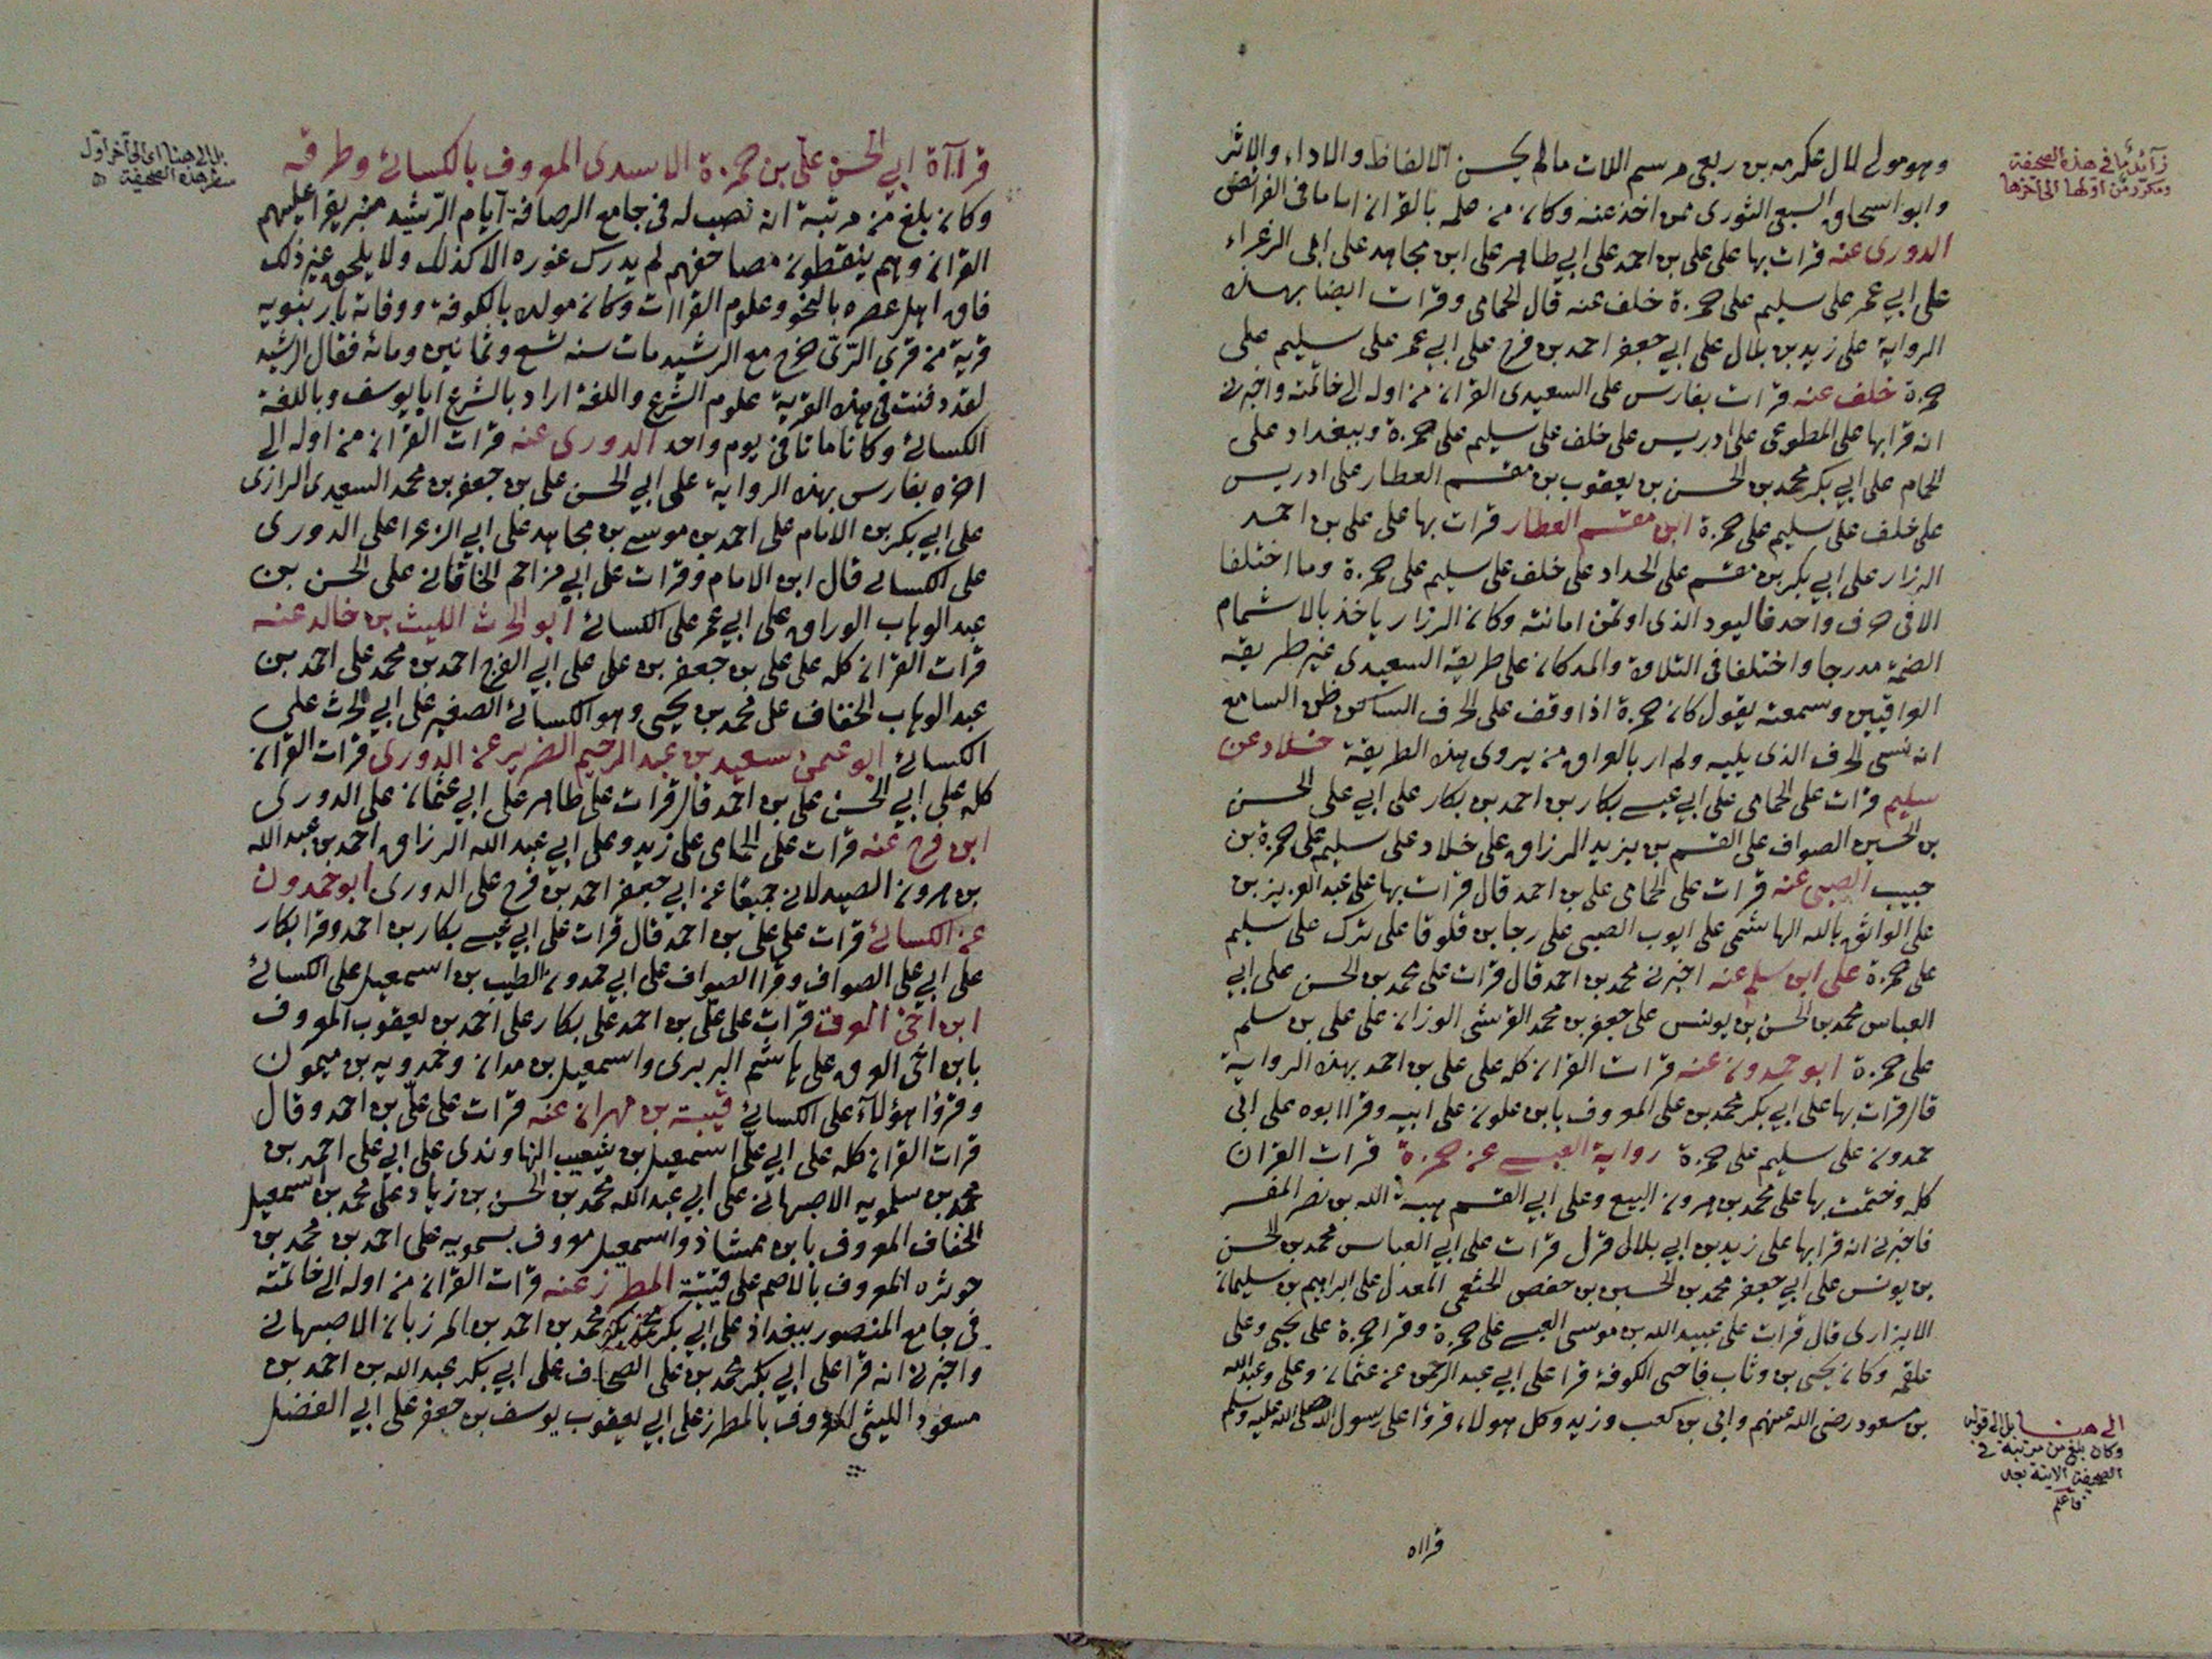 زآئد ما في هذه الصحيفة
ومكرر من اولها الى آخرها
وهو مولى لال عكرمه بن ربعي مرسم اللات مالم يحسن الالفاظ والاداء والاثر
وابو اسحاق السبيعي الثوري ممن اخذ عنه وكان من علمه بالقران اماما في الفرائض
الدوري عنه قرات بها على علي بن احمد على ابي طاهر على ابن مجاهد على ابي الزعراء
على ابي عمر على سليم على حمزة خلف عنه قال الحمامي وقرات ايضا بهذه
الرواية على زيد بن بلال على ابي جعفر احمد بن فرح على ابي عمر على سليم على
حمزة خلف عنه قرات بفارس على السعيدي القران من اوله الى خاتمته واخبرني
انه قرا بها على المطوعي على ادريس على خلف على سليم على حمزة وببغداد على
الحمام على ابي بكر محمد بن الحسن بن يعقوب بن مقسم العطار على ادريس
على خلف على سليم على حمزة ابن مقسم العطار قرات بها على علي بن احمد
الرزار على ابي بكر بن مقسم على الحداد على خلف على سليم على حمزة وما اختلفا
الا في حرف واحد فاليود الذى اوتمن امانته وكان الرزار ياخذ بالاشمام
الضمة مدرجا واختلفا في التلاوة والمد كان على طريقة السعيدي غير طريقة
الواقيين وسمعته يقول كان حمزة اذا وقف على الحرف الساكن ظن السامع
انه نسي الحرف الذى يليه ولم ار بالعراق من يروى هذه الطريقة خلاد عن
سليم قرات على الحمامي على ابي عيسى بكار بن احمد بن بكار على ابي علي الحسن
بن الحسين الصواف على القسم بن يزيد المرزاق على خلاد على سليم على حمزة بن
حبيب الضبي عنه قرات على الحمامي علي بن احمد قال قرات بها على عبد العزيز بن
على الواثق بالله الهاشمي على ايوب الضبي على رجا بن قلوقا على ترك على سليم
على حمزة علي ابن سلم عنه اخبرني محمد بن احمد قال قرات على محمد بن الحسن على ابي
العباس محمد بن الحسن بن يونس على جعفر بن محمد القرشي الوزان على علي بن سلم
على حمزة ابو حمدون عنه قرات القران كله على علي بن احمد بهذه الرواية
قال قرات بها على ابي بكر محمد بن علي المعروف بابن علون على ابيه وقرا ابوه على ابي
حمدون على سليم على حمزة رواية العبسي عن حمزة قرات القران
كله وختمت بها على محمد بن هرون البيع وعلى ابي القسم هبة الله بن نصر المفسر
فاخبرني انه قرا بها على زيد بن ابي بلال قرل قرات على ابي العباس محمد بن الحسن
بن يونس على ابي جعفر محمد بن الحسين بن حفص الخثعمي المعدل على ابراهيم بن سليمان
الابزاري قال قرات على عبيد الله بن موسى العبسي على حمزة وقرا حمزة على يحيى وعلى
علقمه وكان يحيى بن وثاب قاضي الكوفة قرا على ابي عبد الرحمن عن عثمان وعلي وعبد الله
بن مسعود رضي الله عنهم وابي بن كعب وزيد وكل هولاء قروا على رسول الله صلى الله عليه وسلم
الى هنا بل الى قوله
وكان بلغ من مرتبة في
الصحيفة الاتية بعد
فاعلم
قرااة
بل الى هنا اى الى آخر اول
سطر هذه الصحيفة
قراآة ابي الحسن علي بن حمزة الاسدى المعروف بالكسائي وطرقه
وكان بلغ من مرتبة ان نصب له في جامع الرصافة ايام الرشيد منبر يقرا عليهم
القران وهم ينقطون مصاحفهم لم يدرك غوره الا كذلك ولا يلحق غير ذلك
فاق اهل عصره بالنحو وعلوم القراات وكان مولده بالكوفة ووفاته بارنبويه
قرية من قرى الري خرج مع الرشيد مات سنه تسع وثمانين ومائه فقال الرشيد
لقد دفنت في هذه القرية علوم الشرع واللغة اراد بالشرع ابا يوسف وباللغة
الكسائي وكانا ماتا في يوم واحد الدوري عنه قرات القران من اوله الى
اخره بفارس بهذه الرواية على ابي الحسن علي بن جعفر بن محمد السعيدى الرازى
على ابي بكر بن الامام على احمد بن موسى بن مجاهد على ابي الزعرا على الدورى
على الكسائي قال ابن الامام وقرات على ابي مزاحم الخاقاني على الحسن بن
عبد الوهاب الوراق على ابي عمر على الكسائي ابو الحرث الليث بن خالد عنه
قرات القران كله على علي بن جعفر بن علي على ابي الفرج احمد بن محمد على احمد بن
عبد الوهاب الخفاف على محمد بن يحيى وهو الكسائي الصغير على ابي الحرث على
الكسائي ابو عثمن سعيد بن عبد الرحيم الضرير عن الدورى قرات القران
كله على ابي الحسن علي بن احمد قال قرات على طاهر على ابي عثمان على الدورى
ابن فرح عنه قرات على الحمامى على زيد وعلى ابي عبد الله الرزاق احمد بن عبد الله
بن هرون الصيدلاني جميعا عن ابي جعفر احمد بن فرح على الدورى ابو حمدون
عن الكسائي قرات على علي بن احمد قال قرات على ابي عيسى بكار بن احمد وقرا بكار
على ابي علي الصواف وقرا الصواف على ابي حمدون الطيب بن اسمعيل على الكسائي
ابن اخي العرق قرات على علي بن احمد على بكار على احمد بن يعقوب المعروف
بابن اخي العرق على هاشم البربرى واسمعيل بن مدان وحمدويه بن ميمون
وقروا هؤلاء على الكسائي قتيبة بن مهران عنه قرات على علي بن احمد وقال
قرات القران كله على ابي علي اسمعيل بن شعيب النهاوندى على ابي علي احمد بن
محمد بن سلمويه الاصبهاني على ابي عبد الله محمد بن الحسن بن زياد على محمد بن اسمعيل
الخفاف المعروف بابن ممشاذ واسمعيل معروف بسمويه على احمد بن محمد بن
حوثره المعروف بالاصم على قتيبة المطرز عنه قرات القران من اوله الى خاتمته
في جامع المنصور ببغداذ على ابي بكر محمد بن احمد بن المرزبان الاصبهاني
واخبرني انه قرا على ابي بكر محمد بن علي الصحاف على ابي بكر عبد الله بن احمد بن
مسعود الليثي المعروف بالمطرز على ابي يعقوب يوسف بن جعفر على ابي الفضل